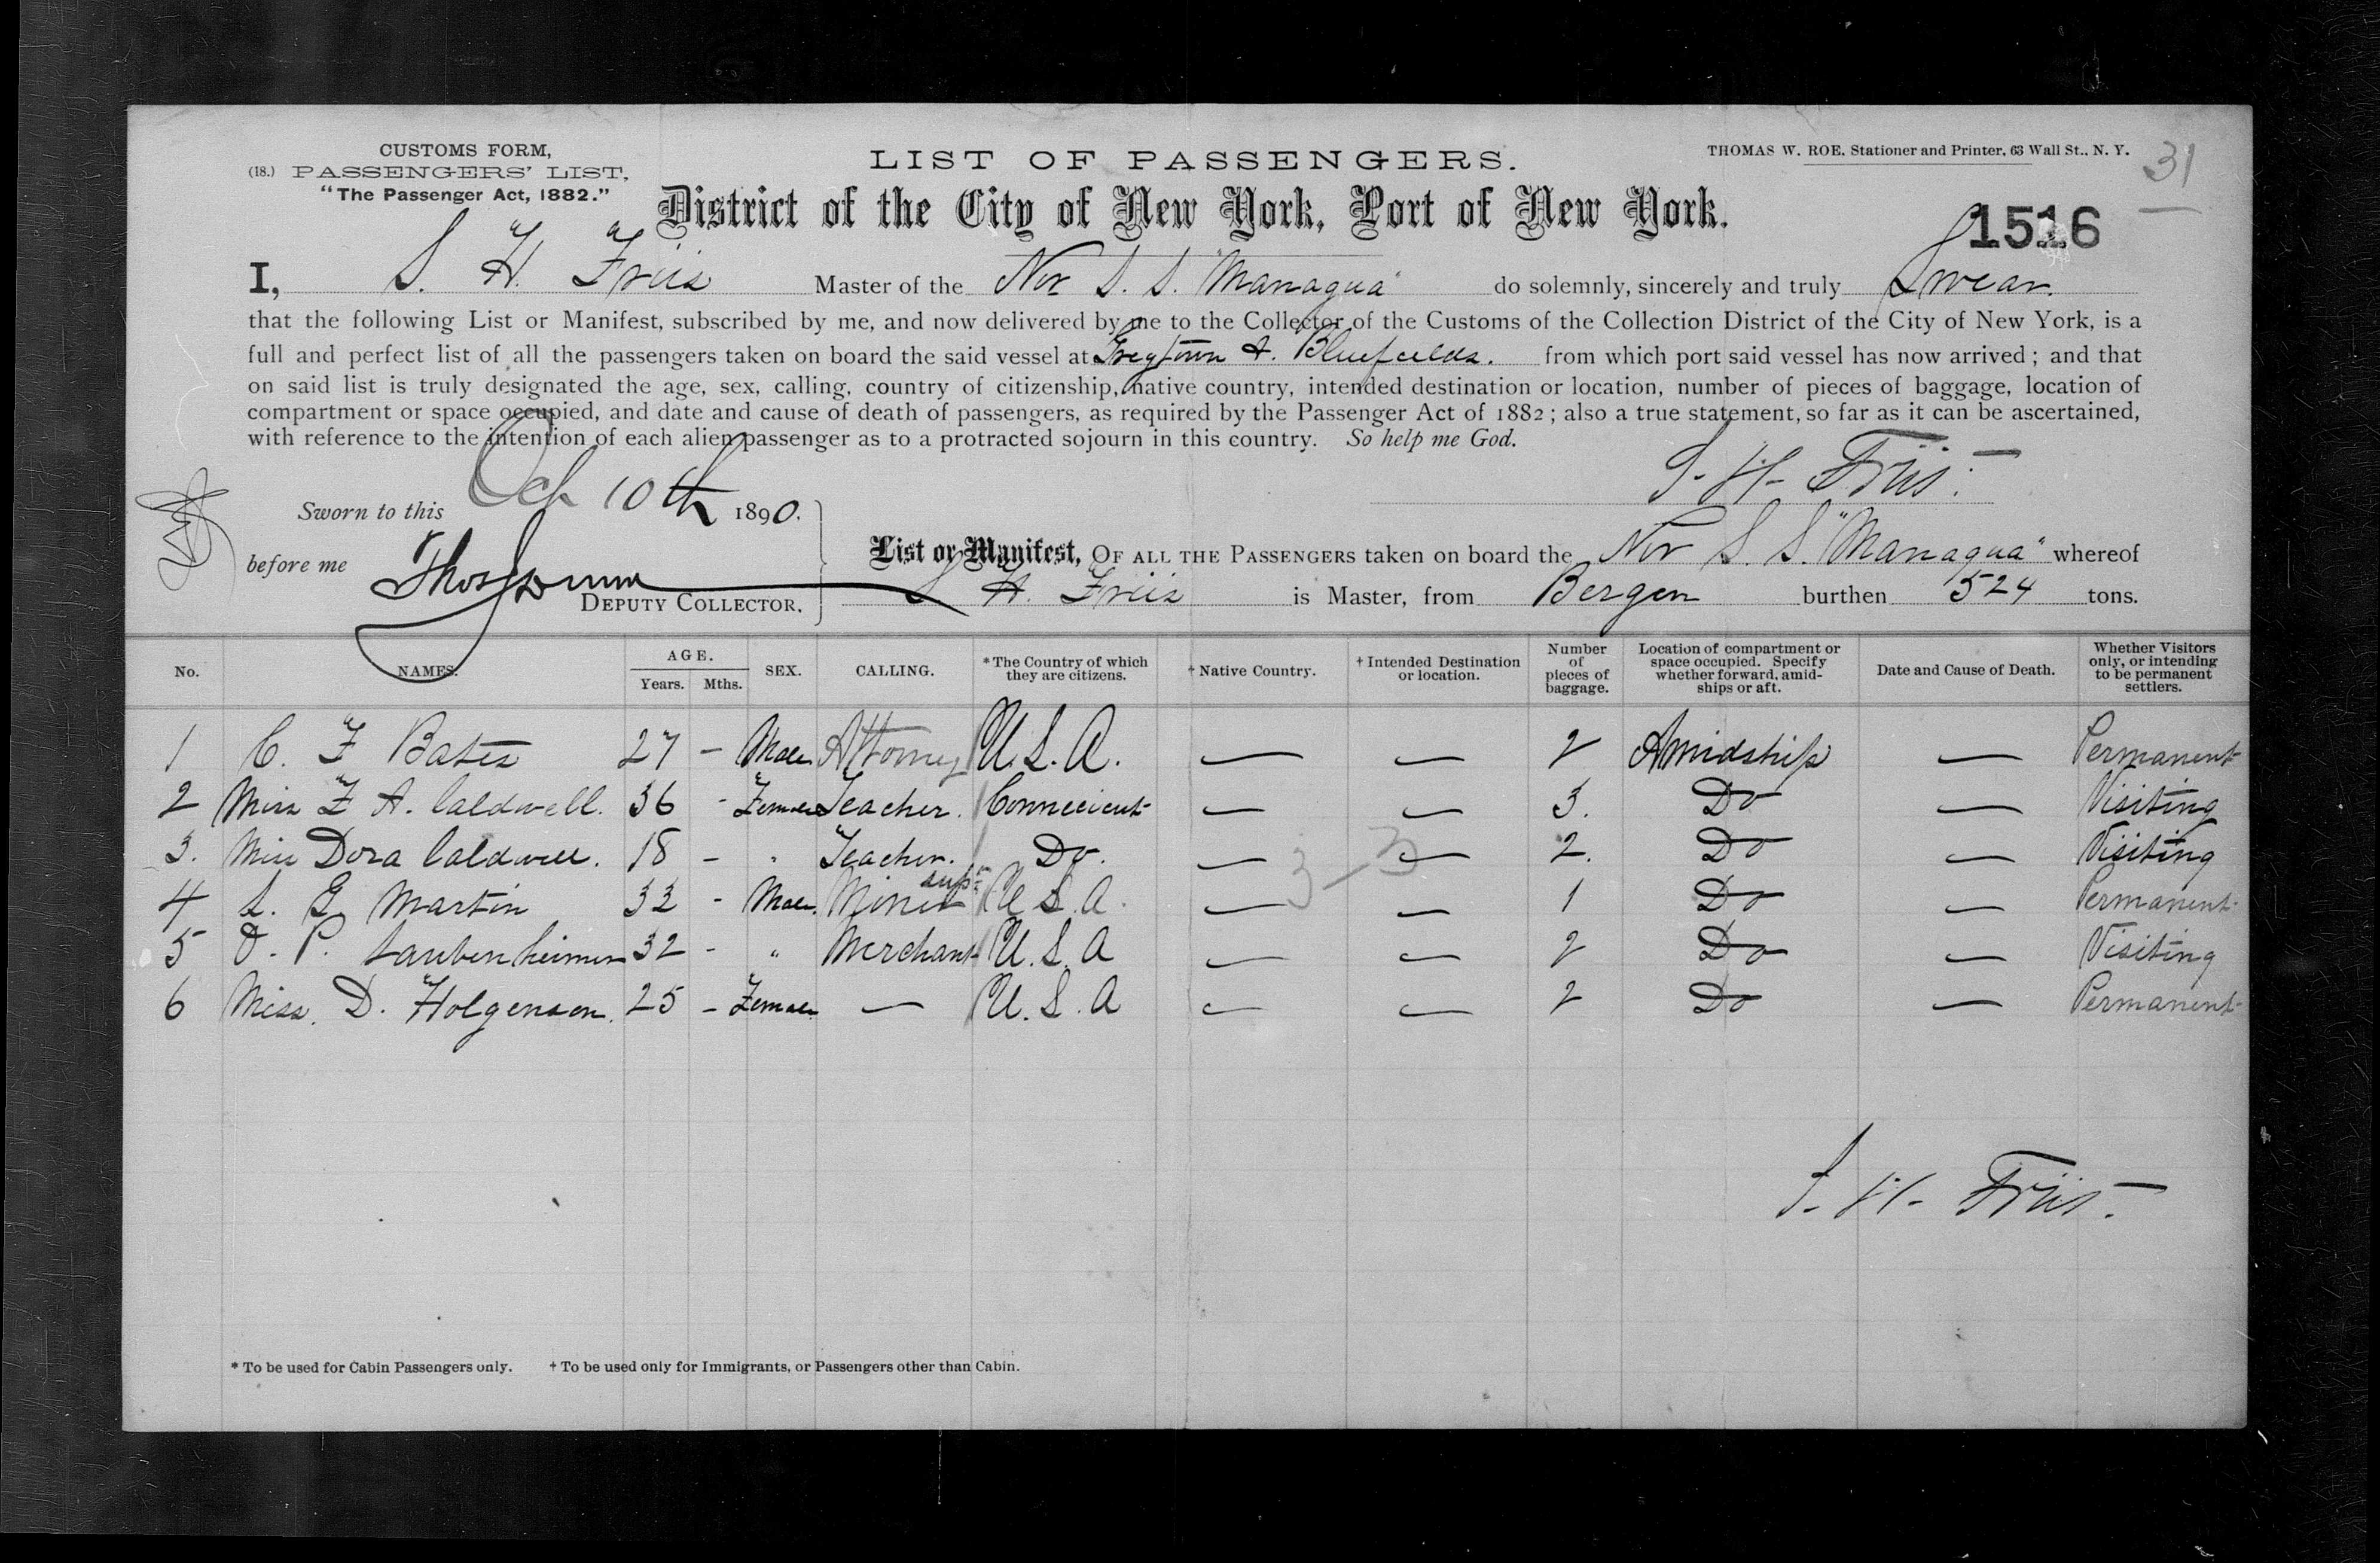 CUSTOMS FORM,
(18.) PASSENGERS' LIST,
"The Passenger Act, 1882."
LIST OF PASSENGERS.
THOMAS W. ROE, Stationer and Printer, 63 Wall St., N. Y.
31
District of the City of New York, Port of New York.
1516
I, S. H. Friis Master of the Nor S. S. "Managua" do solemnly, sincerely and truly Swear.
that the following List or Manifest, subscribed by me, and now delivered by me to the Collector of the Customs of the Collection District of the City of New York, is a
full and perfect list of all the passengers taken on board the said vessel at Greytown & Bluefields. from which port said vessel has now arrived; and that
on said list is truly designated the age, sex, calling, country of citizenship, native country, intended destination or location, number of pieces of baggage, location of
compartment or space occupied, and date and cause of death of passengers, as required by the Passenger Act of 1882; also a true statement, so far as it can be ascertained,
with reference to the intention of each alien passenger as to a protracted sojourn in this country. So help me God.
S. H. Friis.
Sworn to this Oct 10th 1890.
before me Thos
DEPUTY COLLECTOR.
List or Manifest, OF ALL THE PASSENGERS taken on board the Nor S. S. "Managua" whereof
S H. Friis is Master, from Bergen burthen 524 tons.
No. NAMES. AGE. Years. Mths. SEX. CALLING. *The Country of which they are citizens. † Native Country. † Intended Destination or location. Number of pieces of baggage. Location of compartment or space occupied. Specify whether forward, amidships or aft. Date and Cause of Death. Whether Visitors only, or intending to be permanent settlers.
1 C. F Bates 27 – Male Attorney U. S. A. — — 2 Amidship — Permanent
2 Miss F A. Caldwell. 36 - Female Teacher. Connecicut — — 3. Do — Visiting
3. Miss Dora Caldwell. 18 – " Teacher. Do. — — 2. Do — Visiting
3–3
4 L. G Martin 32 - Male. Mines supt U S. A. — — 1 Do — Permanent
5 O. P. Laubenheimer 32 - " Merchant U. S. A — — 2 Do — Visiting
6 Miss. D. Holgensen. 25 – Female — U. S. A — — 2 Do — Permanent
S. H. Friis.
* To be used for Cabin Passengers only. † To be used only for Immigrants, or Passengers other than Cabin.